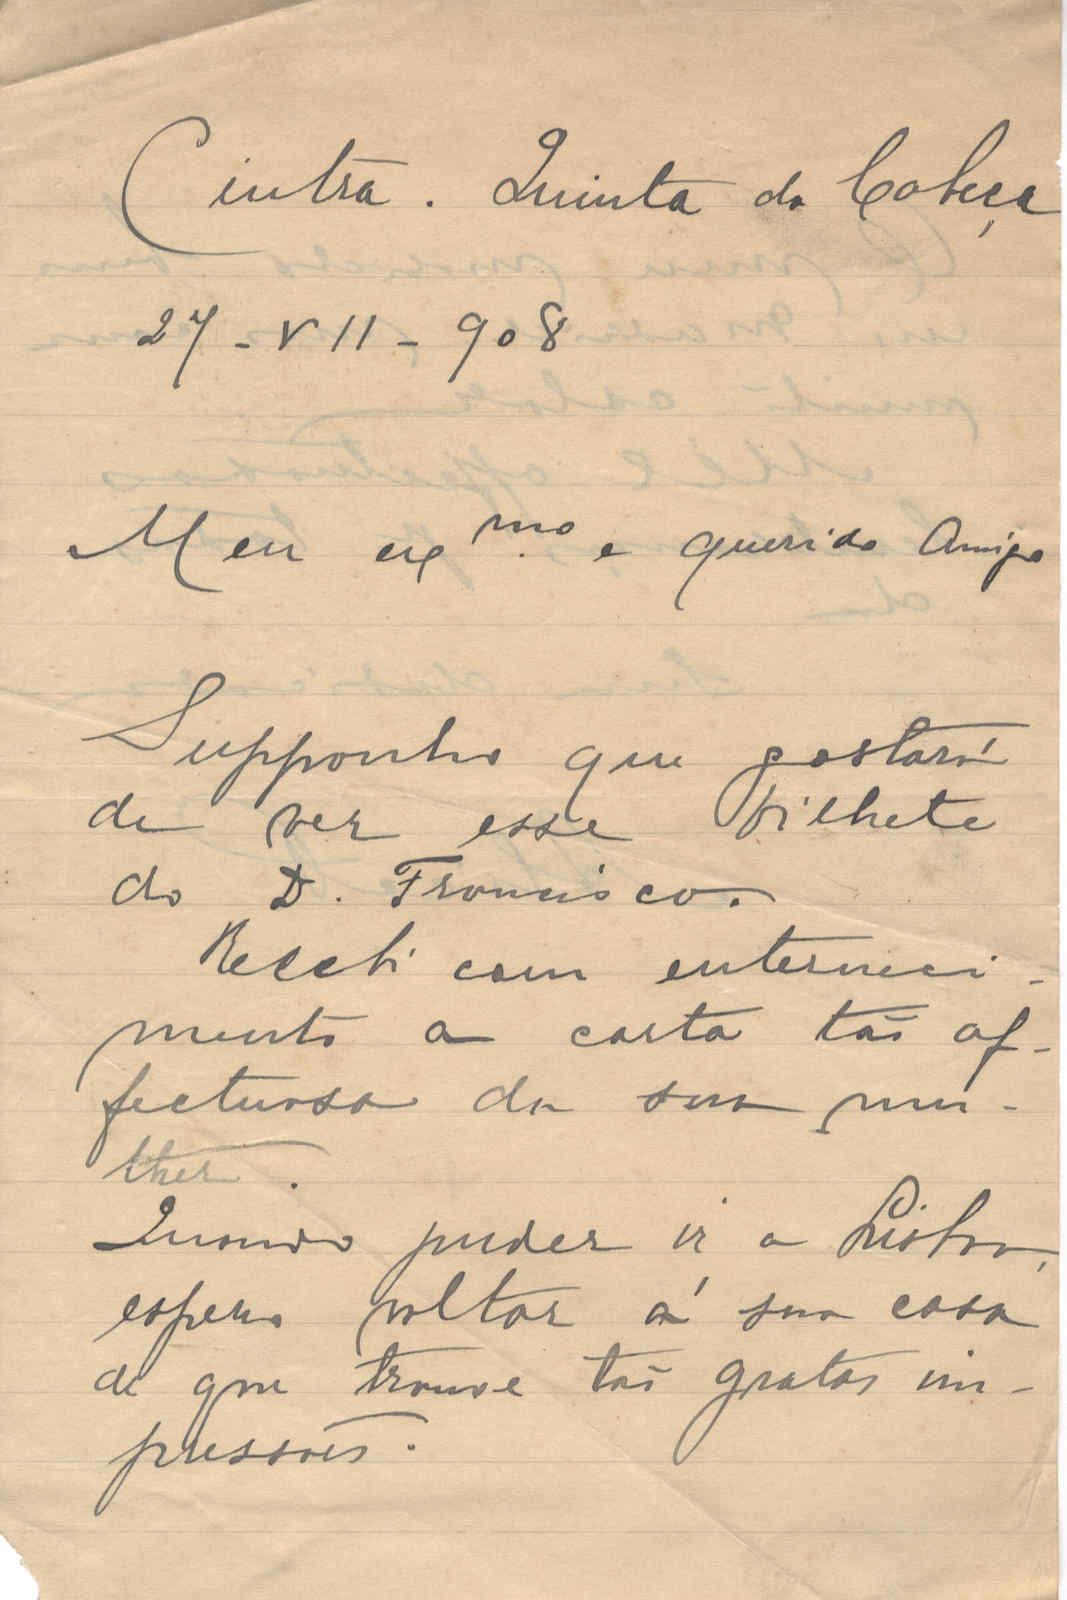 Cintra. Quinta da Cabeça
27-VII-908
Meu exmo. e querido Amigo
Supponho que gostará
de ver esse bilhete
do D. Francisco.
Recebi com enterneci-
mento a carta tão af-
fectuosa da sua mu-
lher.
Quando puder ir a Lisboa,
espero voltar á sua casa
de que trouxe tão gratas im-
pressões.